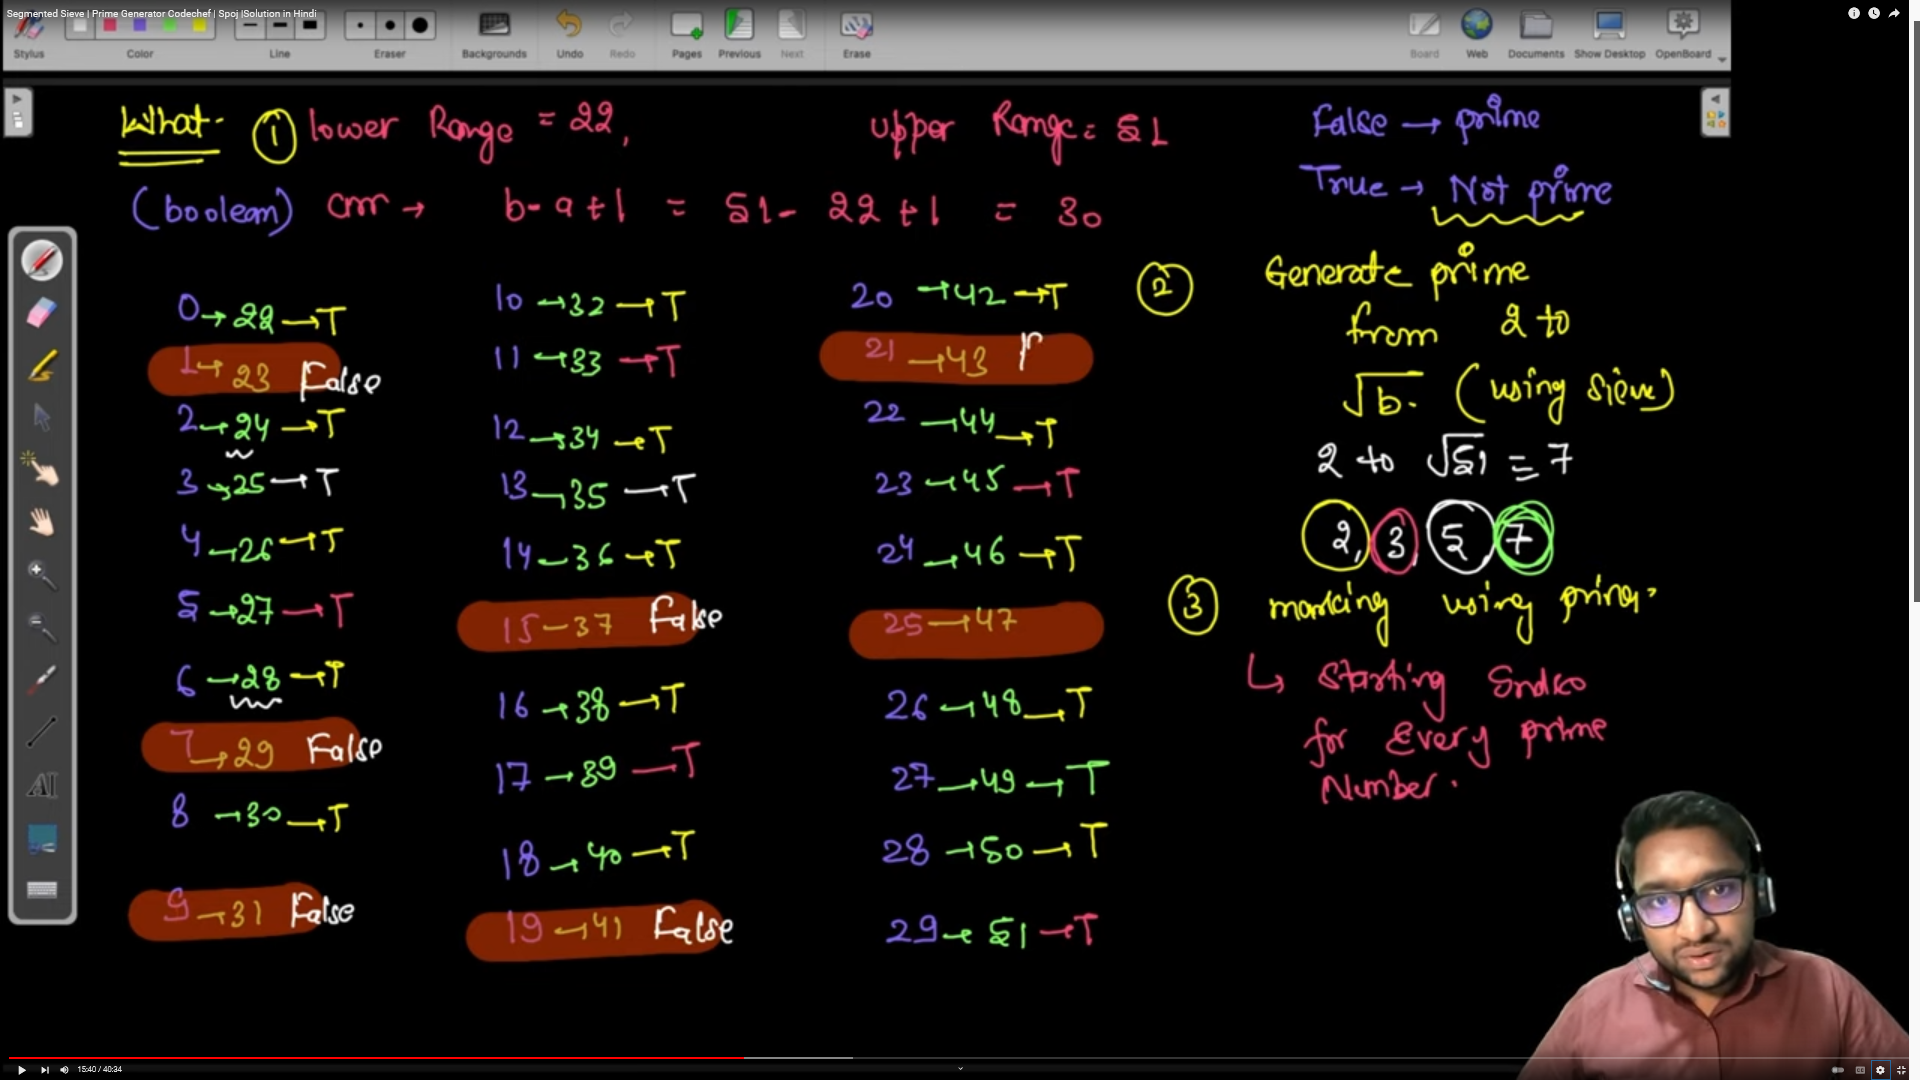 Segmented Sieve | Prime Generator Codechef | Spoj |Solution in Hindi
Stylus Color Line Eraser Backgrounds Undo Redo Pages Previous Next Erase Board Web Documents Show Desktop OpenBoard
What- 1 lower Range = 22, upper Range = 51
(boolean) arr → b-a+1 = 51- 22+1 = 30
0→22→T
1→23 False
2→24→T
3→25→T
4→26→T
5→27→T
6→28→T
7→29 False
8→30→T
9→31 False
10→32→T
11→33→T
12→34→T
13→35→T
14-36→T
15-37 False
16→38→T
17→39→T
18→40→T
19→41 False
20→42→T
21→43
22→44→T
23→45→T
24→46→T
25→47
26→48→T
27→49→T
28→50→T
29→51→T
False → prime
True → Not prime
2 Generate prime
from 2 to
√b. (using sieve)
2 to √51 = 7
2, 3, 5, 7
3 marking using prime.
↳ Starting Index
for Every prime
Number.
AI
15:40 / 40:34